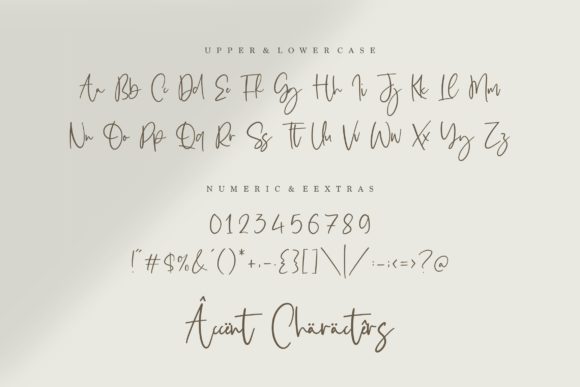 UPPER & LOWERCASE
Aa Bb Cc Dd Ee Ff Gg Hh Ii Jj Kk Ll Mm
Nn Oo Pp Qq Rr Ss Tt Uu Vv Ww Xx Yy Zz
NUMERIC & EEXTRAS
0123456789
!"#$%&'()*+,-.{}[]\|/:~-;<=>?@
Âccënt Chäräctêrs